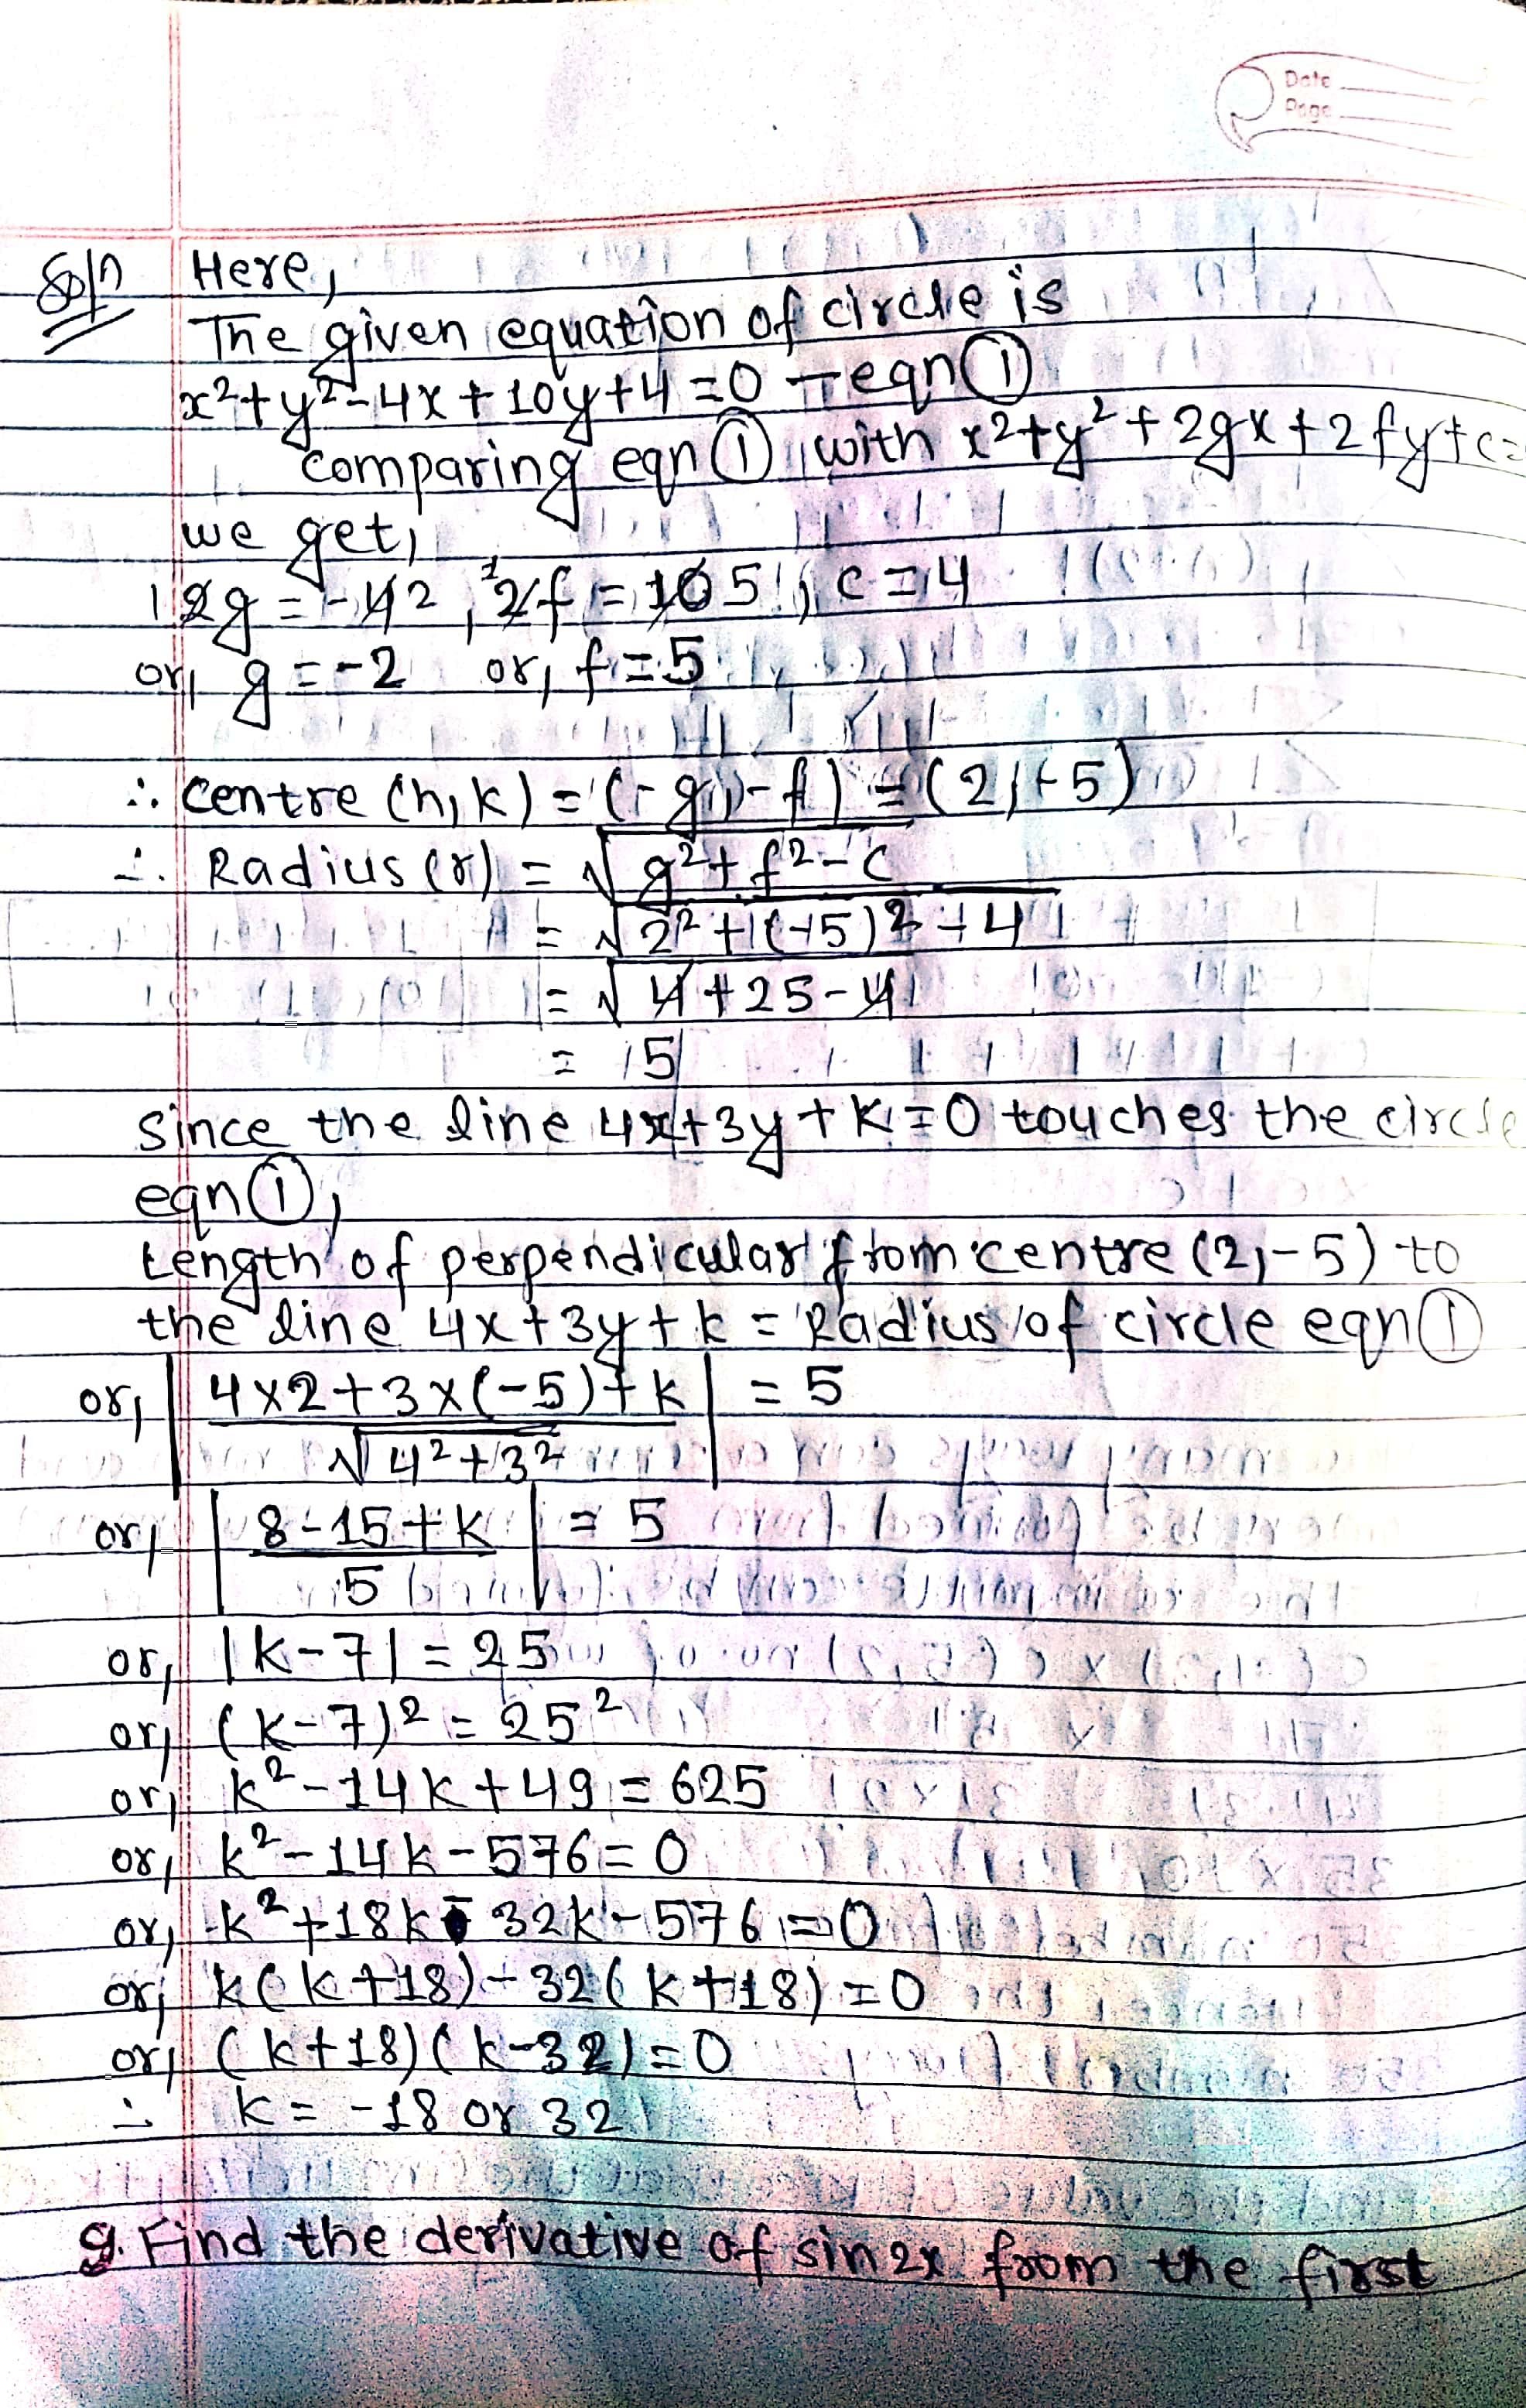 Date
Page
Soln Here,
The given equation of circle is
x²+y²-4x+10y+4=0 - eqn①
comparing eqn① with x²+y²+2gx+2fy+c=
we get,
2g = -4 2, 2f = 10 5, c = 4
or, g = -2 or, f = 5
∴ centre (h,k) = (-g, -f) = (2,-5)
∴ Radius (r) = √g²+f²-c
= √2²+(-5)²-4
= √4+25-4
= 5
since the line 4x+3y+k=0 touches the circle
eqn①,
Length of perpendicular from centre (2,-5) to
the line 4x+3y+k = Radius of circle eqn①
or, |4×2+3×(-5)+k / √4²+3²| = 5
or, |8-15+k / 5| = 5
or, |k-7| = 25
or, (k-7)² = 25²
or, k²-14k+49 = 625
or, k²-14k-576=0
or, k²+18k-32k-576=0
or, k(k+18)-32(k+18)=0
or, (k+18)(k-32)=0
∴ k = -18 or 32
g. Find the derivative of sin2x from the first